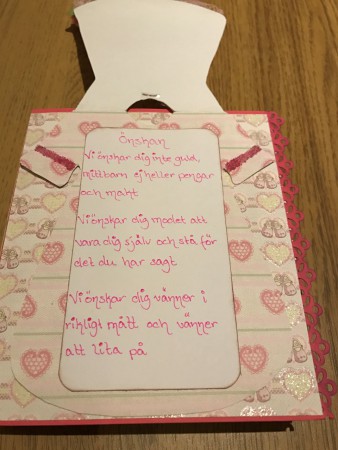 Önskan
Vi önskar dig inte guld,
mittbarn ej heller pengar
och makt
Vi önskar dig modet att
vara dig själv och stå för
det du har sagt
Vi önskar dig vänner i
rikligt mått och vänner
att lita på